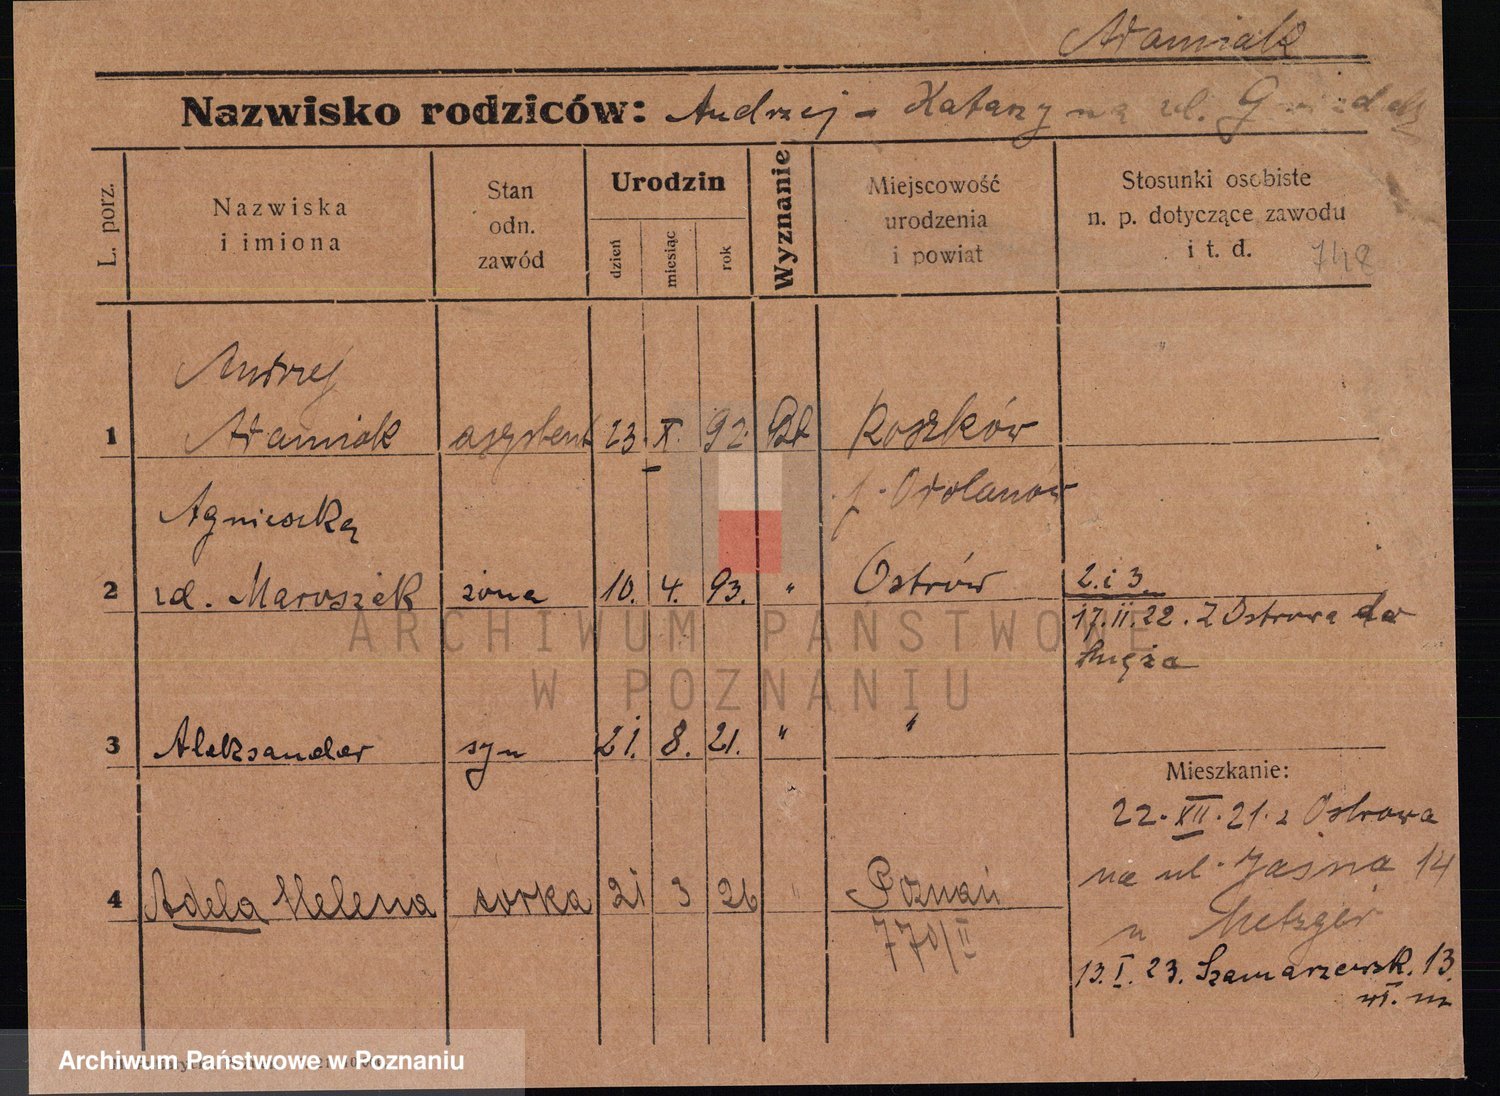 Adamiak
Nazwisko rodziców: Andrzej - Katarzyna ul.
L. porz.
Nazwiska
i imiona
Stan
odn.
zawód
Urodzin
dzień
miesiąc
rok
Wyznanie
Miejscowość
urodzenia
i powiat
Stosunki osobiste
n. p. dotyczące zawodu
i t. d.
748
Andrzej
1 Adamiak asystent 23. X. 92. Roszków
Odolanów
Agnieszka
2 Maroszek żona 10. 4. 93. " Ostrów 2. i 3.
17. II. 22. Z Ostrowa do
męża
3 Aleksander syn 21. 8. 21. " "
Mieszkanie:
22. XII. 21. z Ostrowa
na ul. Jasna 14
u Metzger
4 Adela Helena córka 21 3 26 " Poznań
770/II
13. I. 23. Szamarzewsk. 13.
ARCHIWUM PAŃSTWOWE
W POZNANIU
Archiwum Państwowe w Poznaniu